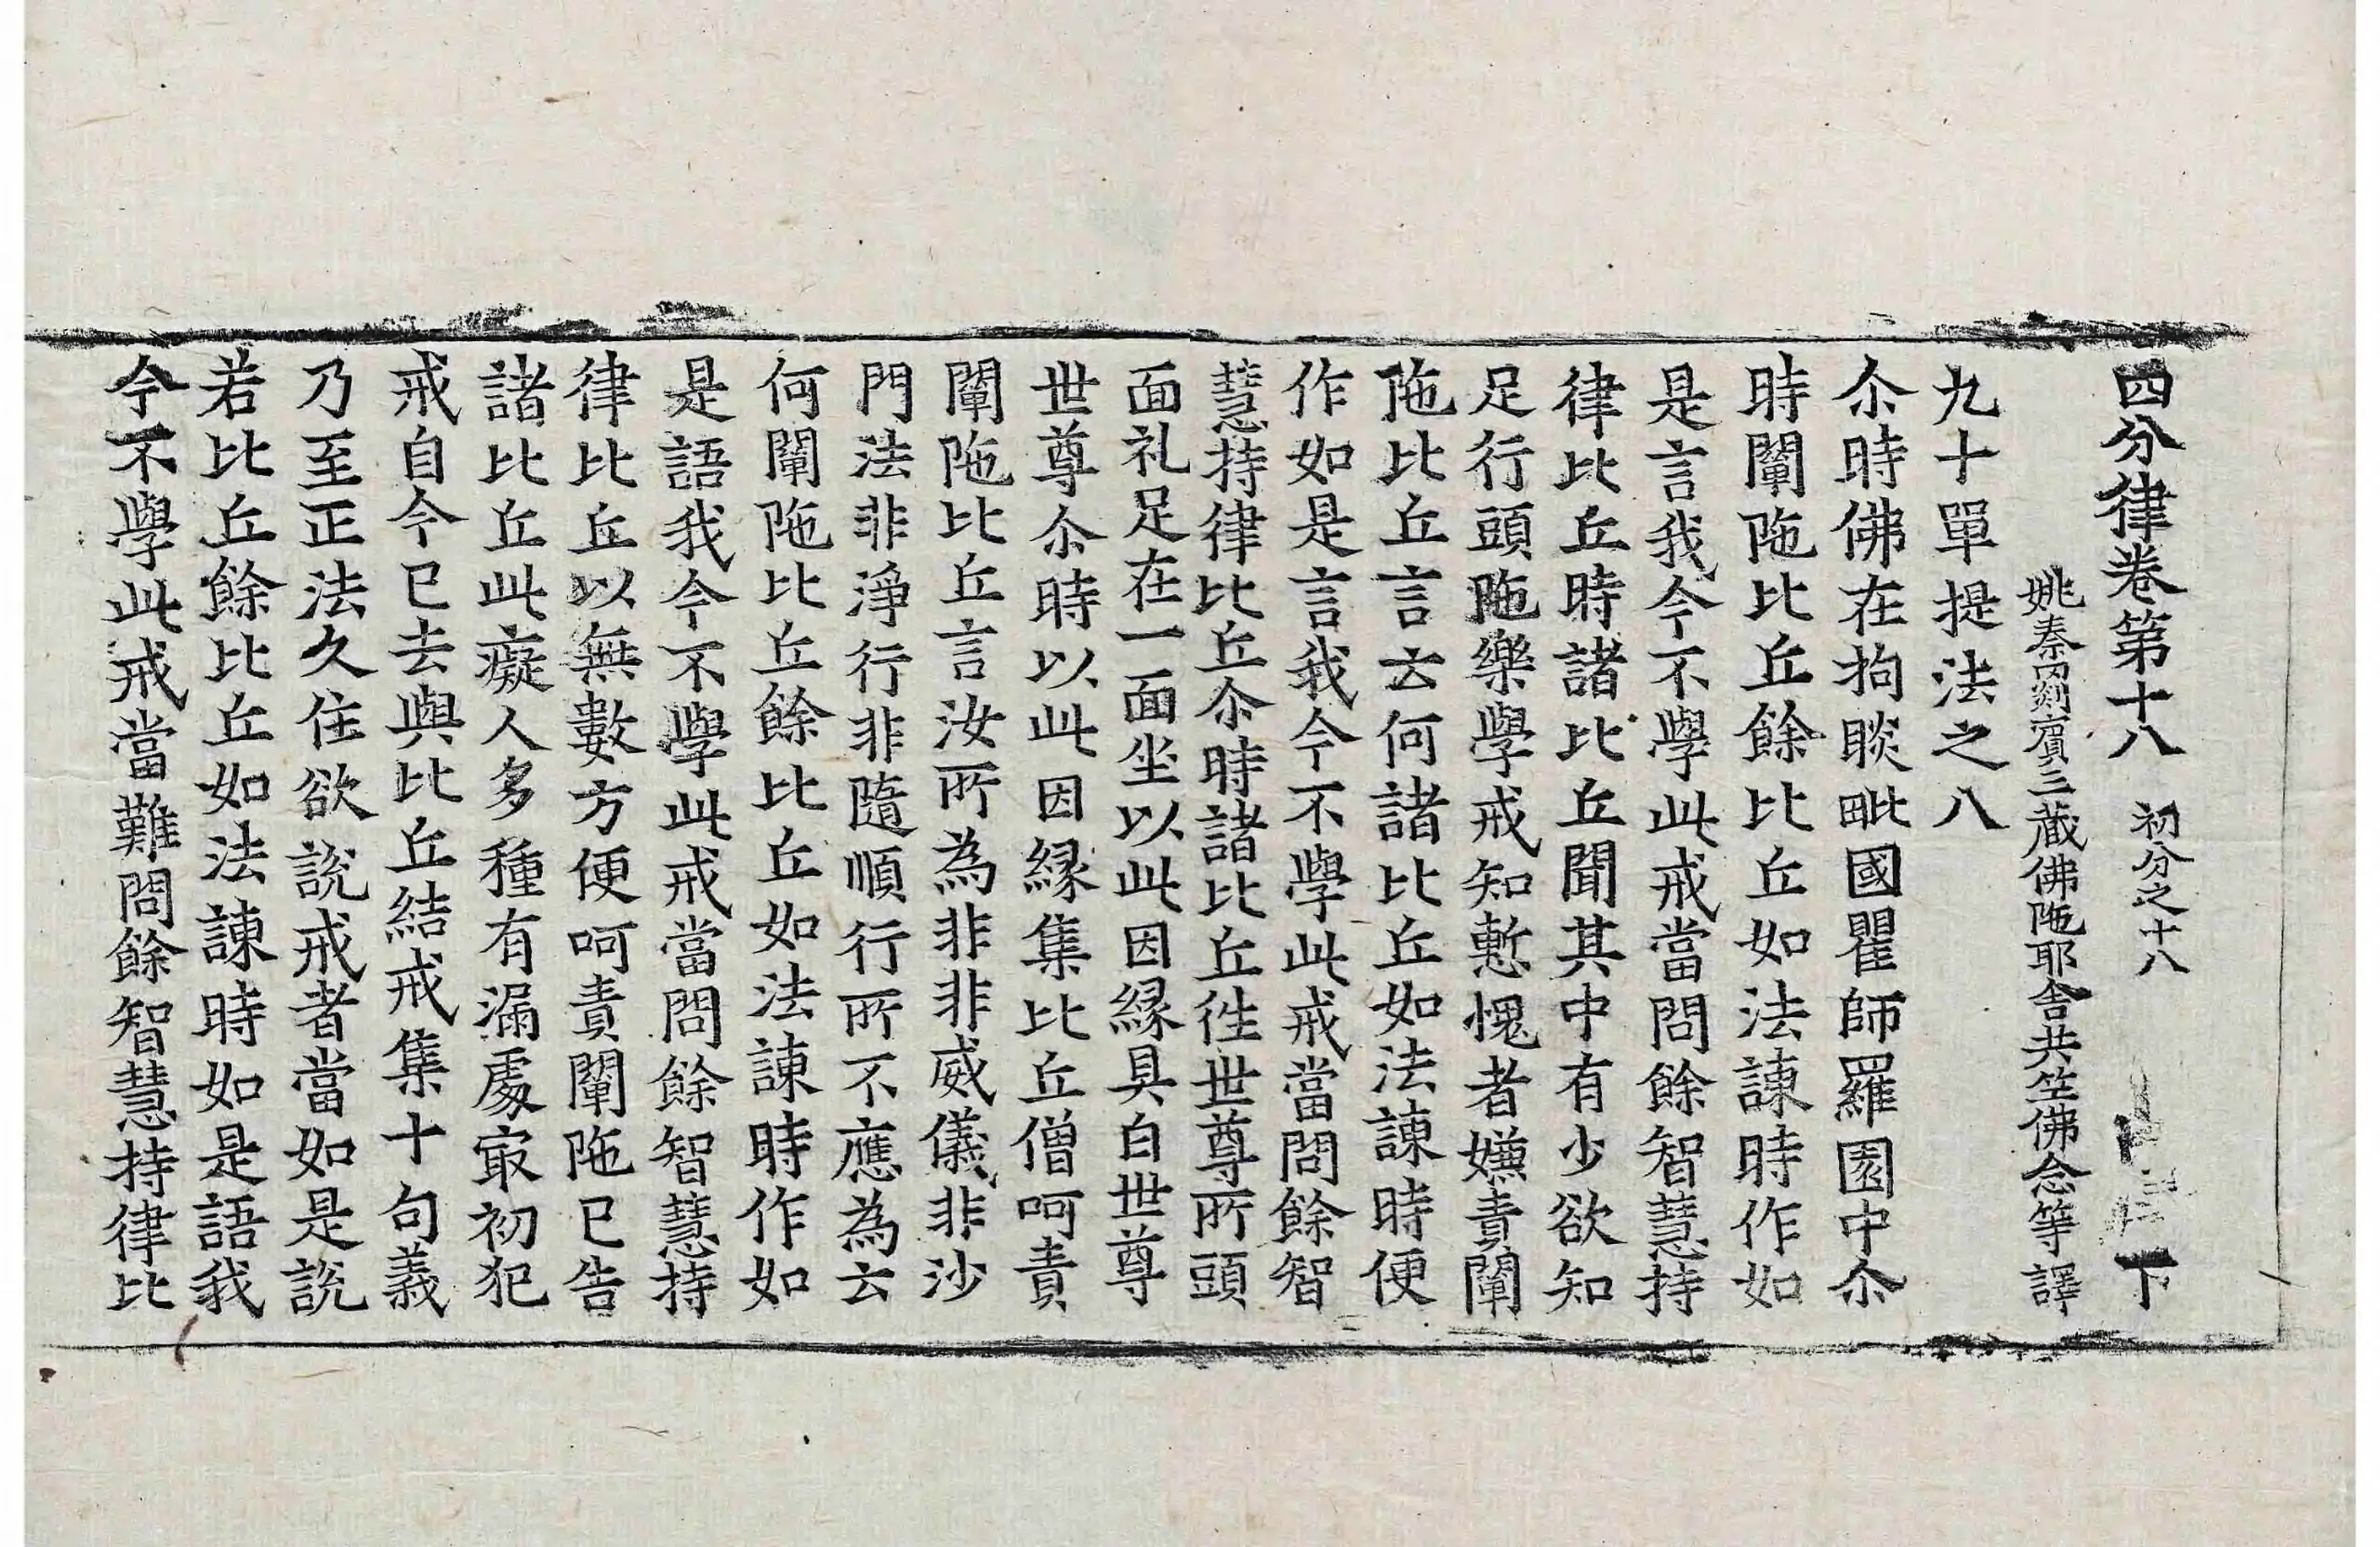 四分律卷第十八 初分之十八 下
姚秦罽賓三藏佛陁耶舍共竺佛念等譯
九十單提法之八
尒時佛在拘睒毗國瞿師羅園中尒
時闡陁比丘餘比丘如法諫時作如
是言我今不學此戒當問餘智慧持
律比丘時諸比丘聞其中有少欲知
足行頭陁樂學戒知慙愧者嫌責闡
陁比丘言云何諸比丘如法諫時便
作如是言我今不學此戒當問餘智
慧持律比丘尒時諸比丘徃世尊所頭
面礼足在一面坐以此因縁具白世尊
世尊尒時以此因縁集比丘僧呵責
闡陁比丘言汝所為非非威儀非沙
門法非淨行非隨順行所不應為云
何闡陁比丘餘比丘如法諫時作如
是語我今不學此戒當問餘智慧持
律比丘以無數方便呵責闡陁已告
諸比丘此癡人多種有漏處㝡初犯
戒自今已去與比丘結戒集十句義
乃至正法久住欲說戒者當如是說
若比丘餘比丘如法諫時如是語我
今不學此戒當難問餘智慧持律比